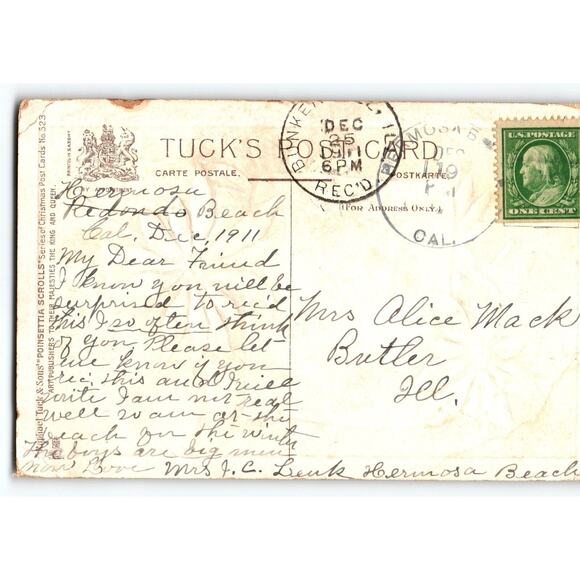 TUCK'S POST CARD
CARTE POSTALE.
POSTKARTE.
(FOR ADDRESS ONLY.)
BY APPOINTMENT
Raphael Tuck & Sons' "POINSETTIA SCROLLS" Series of Christmas Post Cards No. 523.
ART PUBLISHERS TO THEIR MAJESTIES THE KING AND QUEEN.
BUNKER HILL, ILL.
DEC
25
1911
6 PM
REC'D
HERMOSA BEACH
DEC
19
CAL.
U.S. POSTAGE
ONE CENT
Hermosa
Redondo Beach
Cal, Dec, 1911
My Dear Friend
I know you will be
surprised to rec'd
this I so often think
of you Please let
me know if you
rec. this and I will
write I am not real
well so am at the
beach for the winter
The boys are big men
now Love Mrs J. C. Leuk Hermosa Beach
Mrs Alice Mack
Butler
Ill.